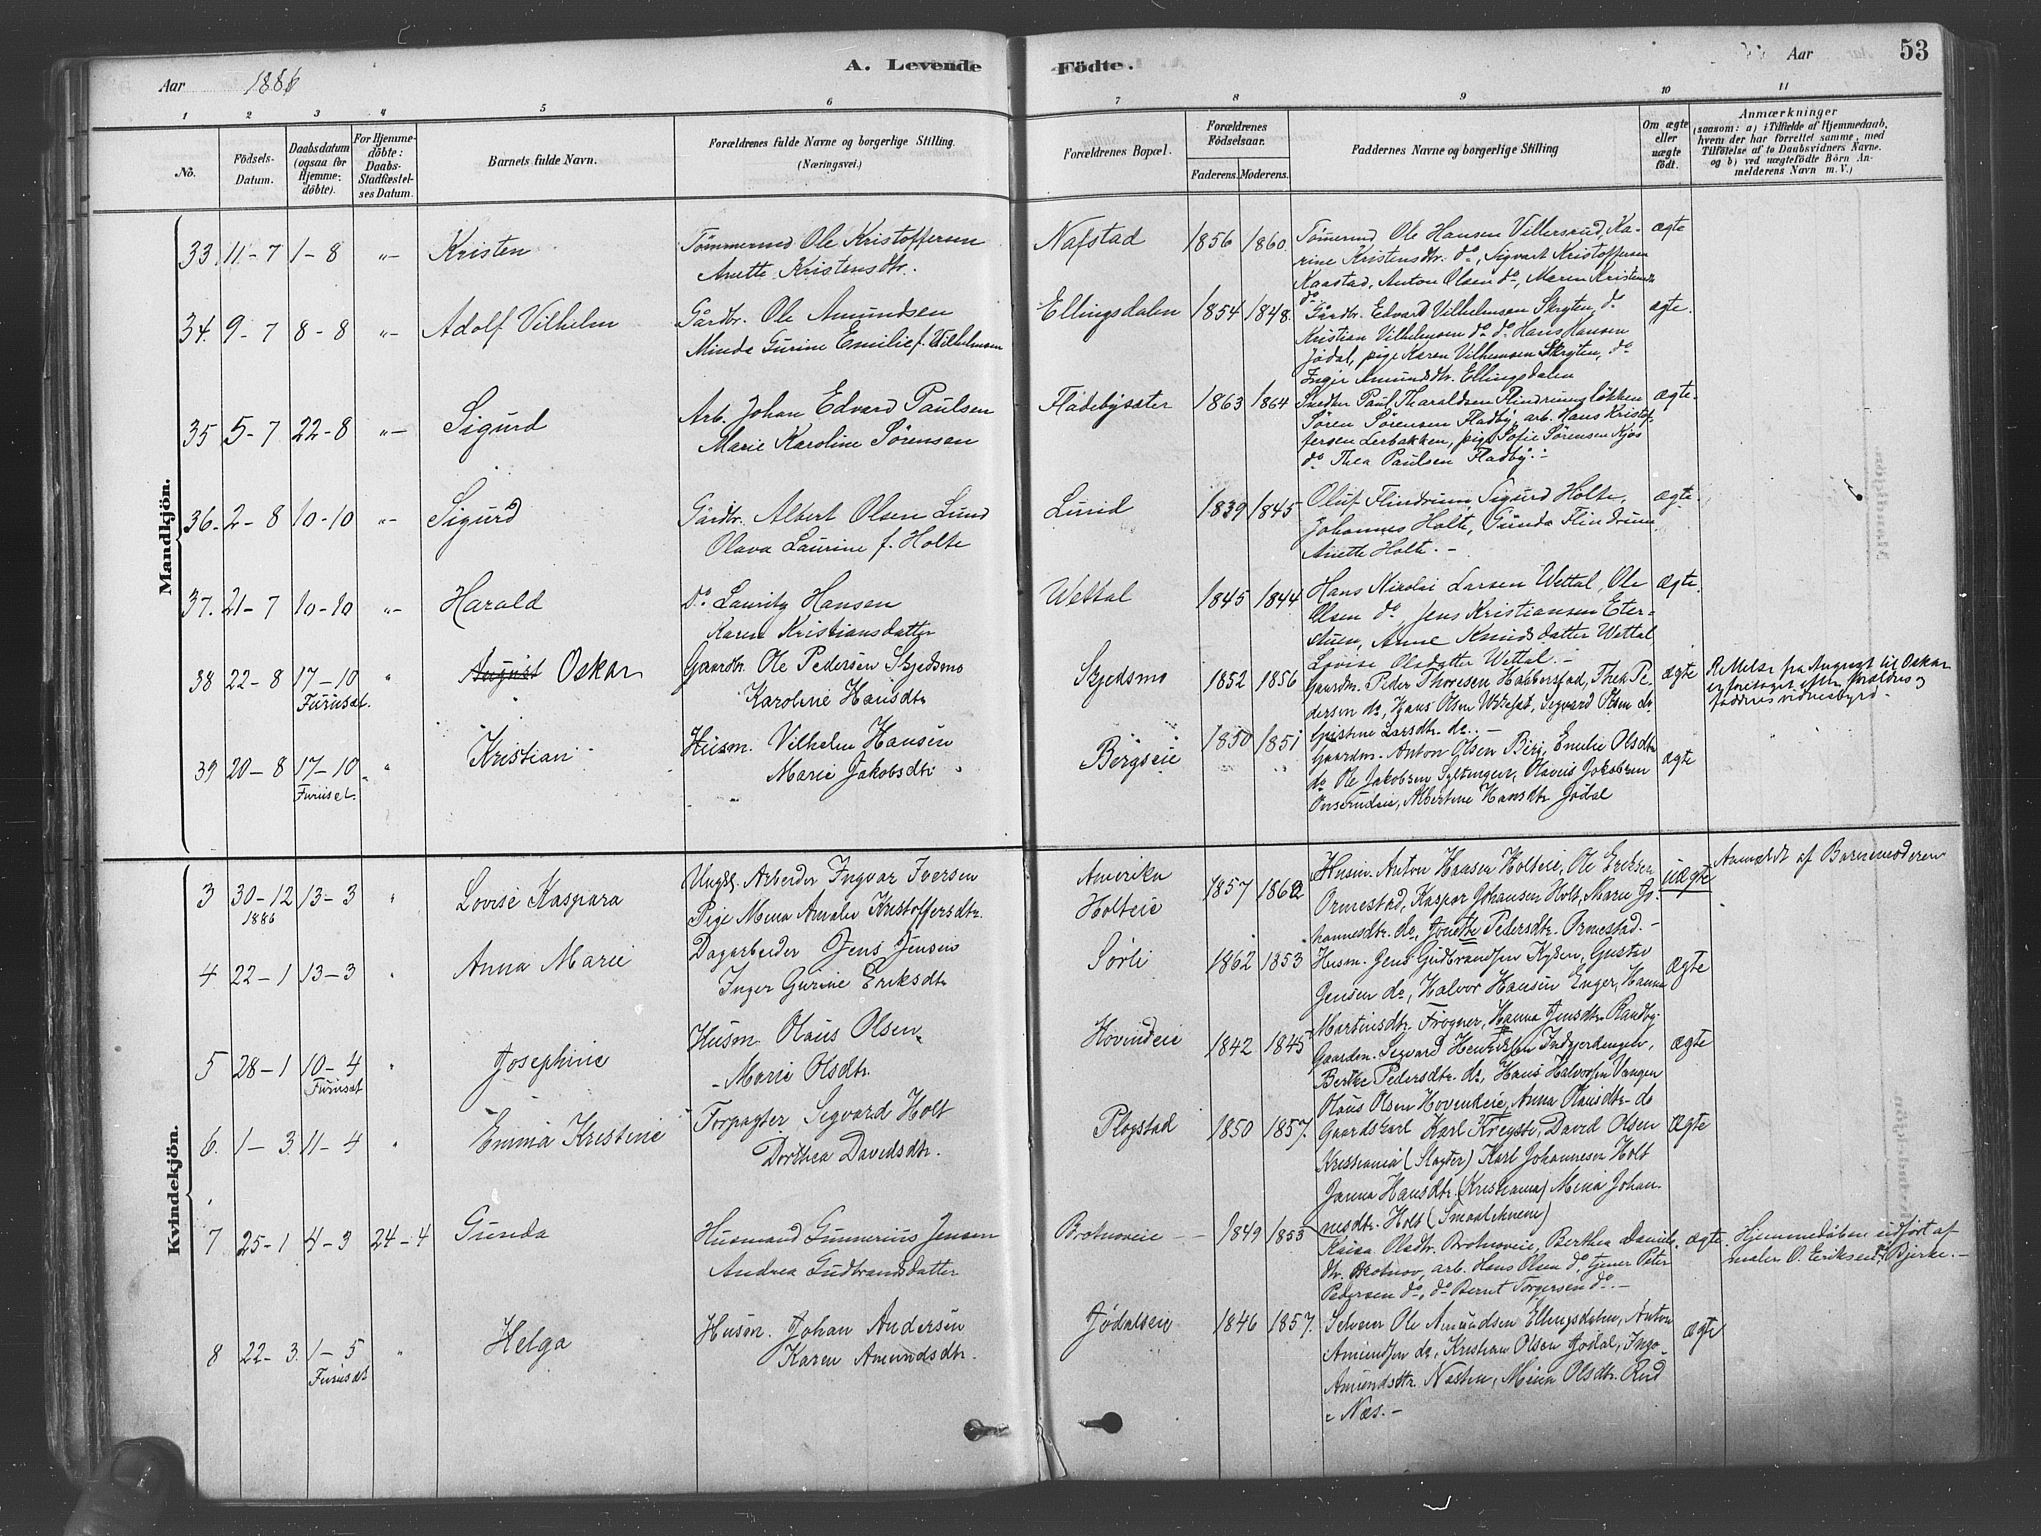 Aar 1886
A. Levende Födte.
Aar 53
1 2 3 4 5 6 7 8 9 10 11
No.
Födsels-Datum.
Daabsdatum (ogsaa for Hjemme-döbte).
For Hjemme-döbte: Daabs-Stadfæstel-ses Datum.
Barnets fulde Navn.
Forældrenes fulde Navne og borgerlige Stilling.
(Næringsvei.)
Forældrenes Bopæl.
Forældrenes Födselsaar.
Faderens. Moderens.
Faddernes Navne og borgerlige Stilling
Om ægte eller uægte født.
Anmærkninger
(saasom: a) i Tilfælde af Hjemmedaab,
hvem der har forrettet samme, med
Tilföielse af to Daabsvidners Navne.
og b) ved uægtefödte Börn An-
melderens Navn m. V.)
Mandkjön.
33. 11-7 1-8 "- Kristen
Tømmermd Ole Kristoffersen
Anette Kristensdtr.
Nafstad 1856 1860.
Tømermd Ole Hansen Villersrud, Ka-
rine Kristensdtr. do, Sigvart Kristoffersen
Kaastad, Anton Olsen do, Maren Kristensdtr
do.
ægte
34. 9-7 8-8 "- Adolf Vilhelm
Gårdbr. Ole Amundsen
Minda Gurine Emilie f. Vilhelmsen
Ellingsdalen 1854 1848.
Gårdbr. Edvard Vilhelmsen Skryten, do
Kristian Vilhelmsen do do Hans Hansen
Jødal, pige Karen Vilhemsen Skryten, do
Inger Amundsdtr. Ellingsdalen
ægte.
35 5-7 22-8 "- Sigurd
Arb. Johan Edvard Paulsen
Marie Karoline Sørensen
Fladebysæter 1863 1864
Snedker Paul Tharaldsen Flindrumsløkken
Søren Sørensen Fladby, arb. Hans Kristof-
fersen Lerbakken, pige Sofie Sørensen Kjos
do Thea Paulsen Fladby.-
ægte.
36. 2-8 10-10 "- Sigurd
Gårdbr. Albert Olsen Lund
Olava Laurine f. Holte
Lund 1839 1845
Oluf Flindrum, Sigurd Holte,
Johannes Holte, Gunda Flindrum,
Anette Holte.-
ægte.
37. 21-7 10-10 "- Harald
Do. Lauritz Hansen
Karen Kristiansdatter
Wettal 1845 1844
Hans Nikolai Larsen Wettal, Ole
Olsen do Jens Kristiansen Eter-
stuen, Anne Knudsdatter Wettal
Lovise Olsdatter Wettal.-
Ægte.
38 22-8 17-10 Furuset. " August Oskar
Gaardbr. Ole Pedersen Skjedsmo
Karoline Hansdtr
Skjedsmo 1852 1856
Gaardm. Peder Thoresen Habberstad, Thea Pe-
dersen do, Hans Olsen, Segvard Olsen do
Gristine Larsdtr. do.-
ægte
Rettelse fra August til Oskar
er foretaget efter forældres og
faddres vidnesbyrd.
39 20-8 17-10 Furuset. " Kristian
Husm. Vilhelm Hansen
Marie Jakobsdtr
Bergseie 1850 1851
Gaardm. Anton Olsen Berg, Emelie Olsdtr
do Ole Jakobsen, Olaves Jakobsen
Albertine Hansdtr Jødal
ægte
Kvindekjön.
3 30-12 1886 13-3 " Lovise Kaspara
Ungk. Arbeider Ingvar Iversen
Pige Mina Amalie Kristoffersdtr.
Amerika
Holteie
1857 1862
Husm. Anton Hansen Holteie, Ole Eriksen
Ormestad, Kaspar Johansen Holt, Marie Jo-
hannesdtr. do, Josette Pedersdtr. Ormestad.-
uægte
Anmeldt af Barnemoderen
4 22-1 13-3 " Anna Marie
Dagarbeider Jens Jensen
Inger Gurine Eriksdtr
Sørli 1862 1853
Husm. Jens Gudbrandsen, Gustav
Jensen do, Halvor Hansen Enger, Hanna
Martinsdtr. Frogner, Hanna Jensdtr. Randby
Ægte
5 28-1 10-4 Furuset " Josephine
Husm. Olaus Olsen
Marie Olsdtr.
Hovindeie 1842 1845
Gaardm. Segvard Henriksen Indgjerdingen,
Berthe Pedersdtr. do, Hans Halvorsen Vangen
Olaus Olsen Hovindeie, Anna Olausdtr. do
ægte
6. 1-3. 11-4 " Emma Kristine
Forpagter Segvard Holt
Dorthea Davidsdtr.
Plogstad 1850 1857.
Gaardskarl Karl Kregste, David Olsen
Kristiania (Slagter) Karl Johannesen Holt
Janna Hansdtr. (Kristiania) Mina Johan-
nesdtr. Holt (Smaalehnene)
Ægte
7 25-1 4-3 24-4 Gunda
Husmand Gunnerius Jensen
Andrea Gudbrandsdatter
Brotnoveie 1849 1853
Kaisa Olsdtr. Brotnoveie, Berthea Daniels-
dtr. Brotnov, arb. Hans Olsen do, Gjener Peter
Pedersen do, do Bernt Torgersen do.-
ægte.
Hjemmedøben udført af
maler O. Eriksen, Bjerke.-
8 22-3. 1-5 Furuset " Helga
Husm. Johan Andersen
Karen Amundsdtr.
Jødalseie 1846 1857.
Selveier Ole Amundsen Ellingsdalen, Anton
Amundsen do, Kristian Olsen Jødal, Inga
Amundsdtr. Nasten, Mina Olsdtr. Rud
i Næs.-
Ægte